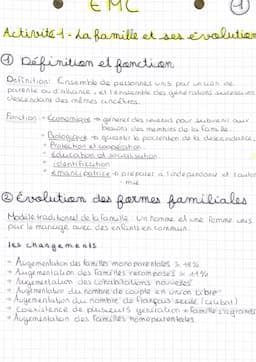 EMC
①
Activité 1 - La famille et ses évolutions
① Définition et fonction
Définition: Ensemble de personnes unis par un lien de
parenté ou d'alliance, et l'ensemble des générations successives
descendant des mêmes ancêtres.
Fonction: - Economique → générer des revenus pour subvenir aux
besoins des membres de la famille.
- Biologique → garantir la descendance.
- Protection et coopération.
- éducation et socialisation
- identification
- émancipatrice → préparer à l'indépendance et l'auto-
mie
② Evolution des formes familiales
Modèle traditionnel de la famille: un homme et une femme unis
par le mariage avec des enfants en commun.
les changements
- Augmentation des familles monoparentales
- Augmentation des familles recomposées
- Augmentation des cohabitations nouvelles
- Augmentation du nombre de couple en union libre
- Augmentation du nombre de français seule (célibat)
- Coexistence de plusieurs génération
- Augmentation des familles homoparentales